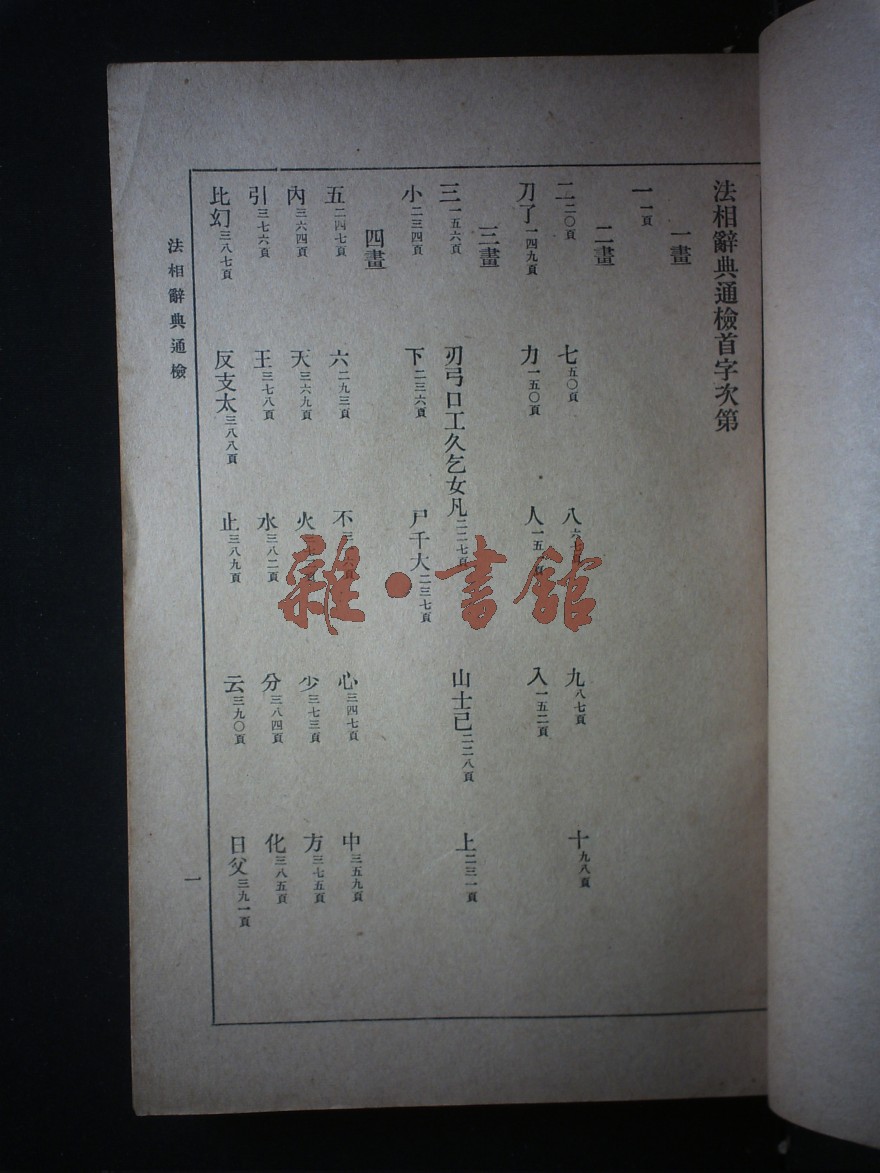 法相辭典通檢首字次第
一畫
一 一頁
二畫
二 二〇頁 七 五〇頁 八 九 八七頁 十 九八頁
刀了 一四九頁 力 一五〇頁 人 入 一五二頁
三畫
三 一五六頁 刃弓口工久乞女凡 二二七頁 山士已 二二八頁 上 二三一頁
小 二三四頁 下 二三六頁 尸千大 二三七頁
四畫
五 二四七頁 六 二九三頁 不 心 三四七頁 中 三五九頁
內 三六四頁 天 三六九頁 火 少 三七三頁 方 三七五頁
引 三七六頁 王 三七八頁 水 三八二頁 分 三八四頁 化 三八五頁
比幻 三八七頁 反支太 三八八頁 止 三八九頁 云 三九〇頁 日父 三九一頁
法相辭典通檢
一
雜·書館